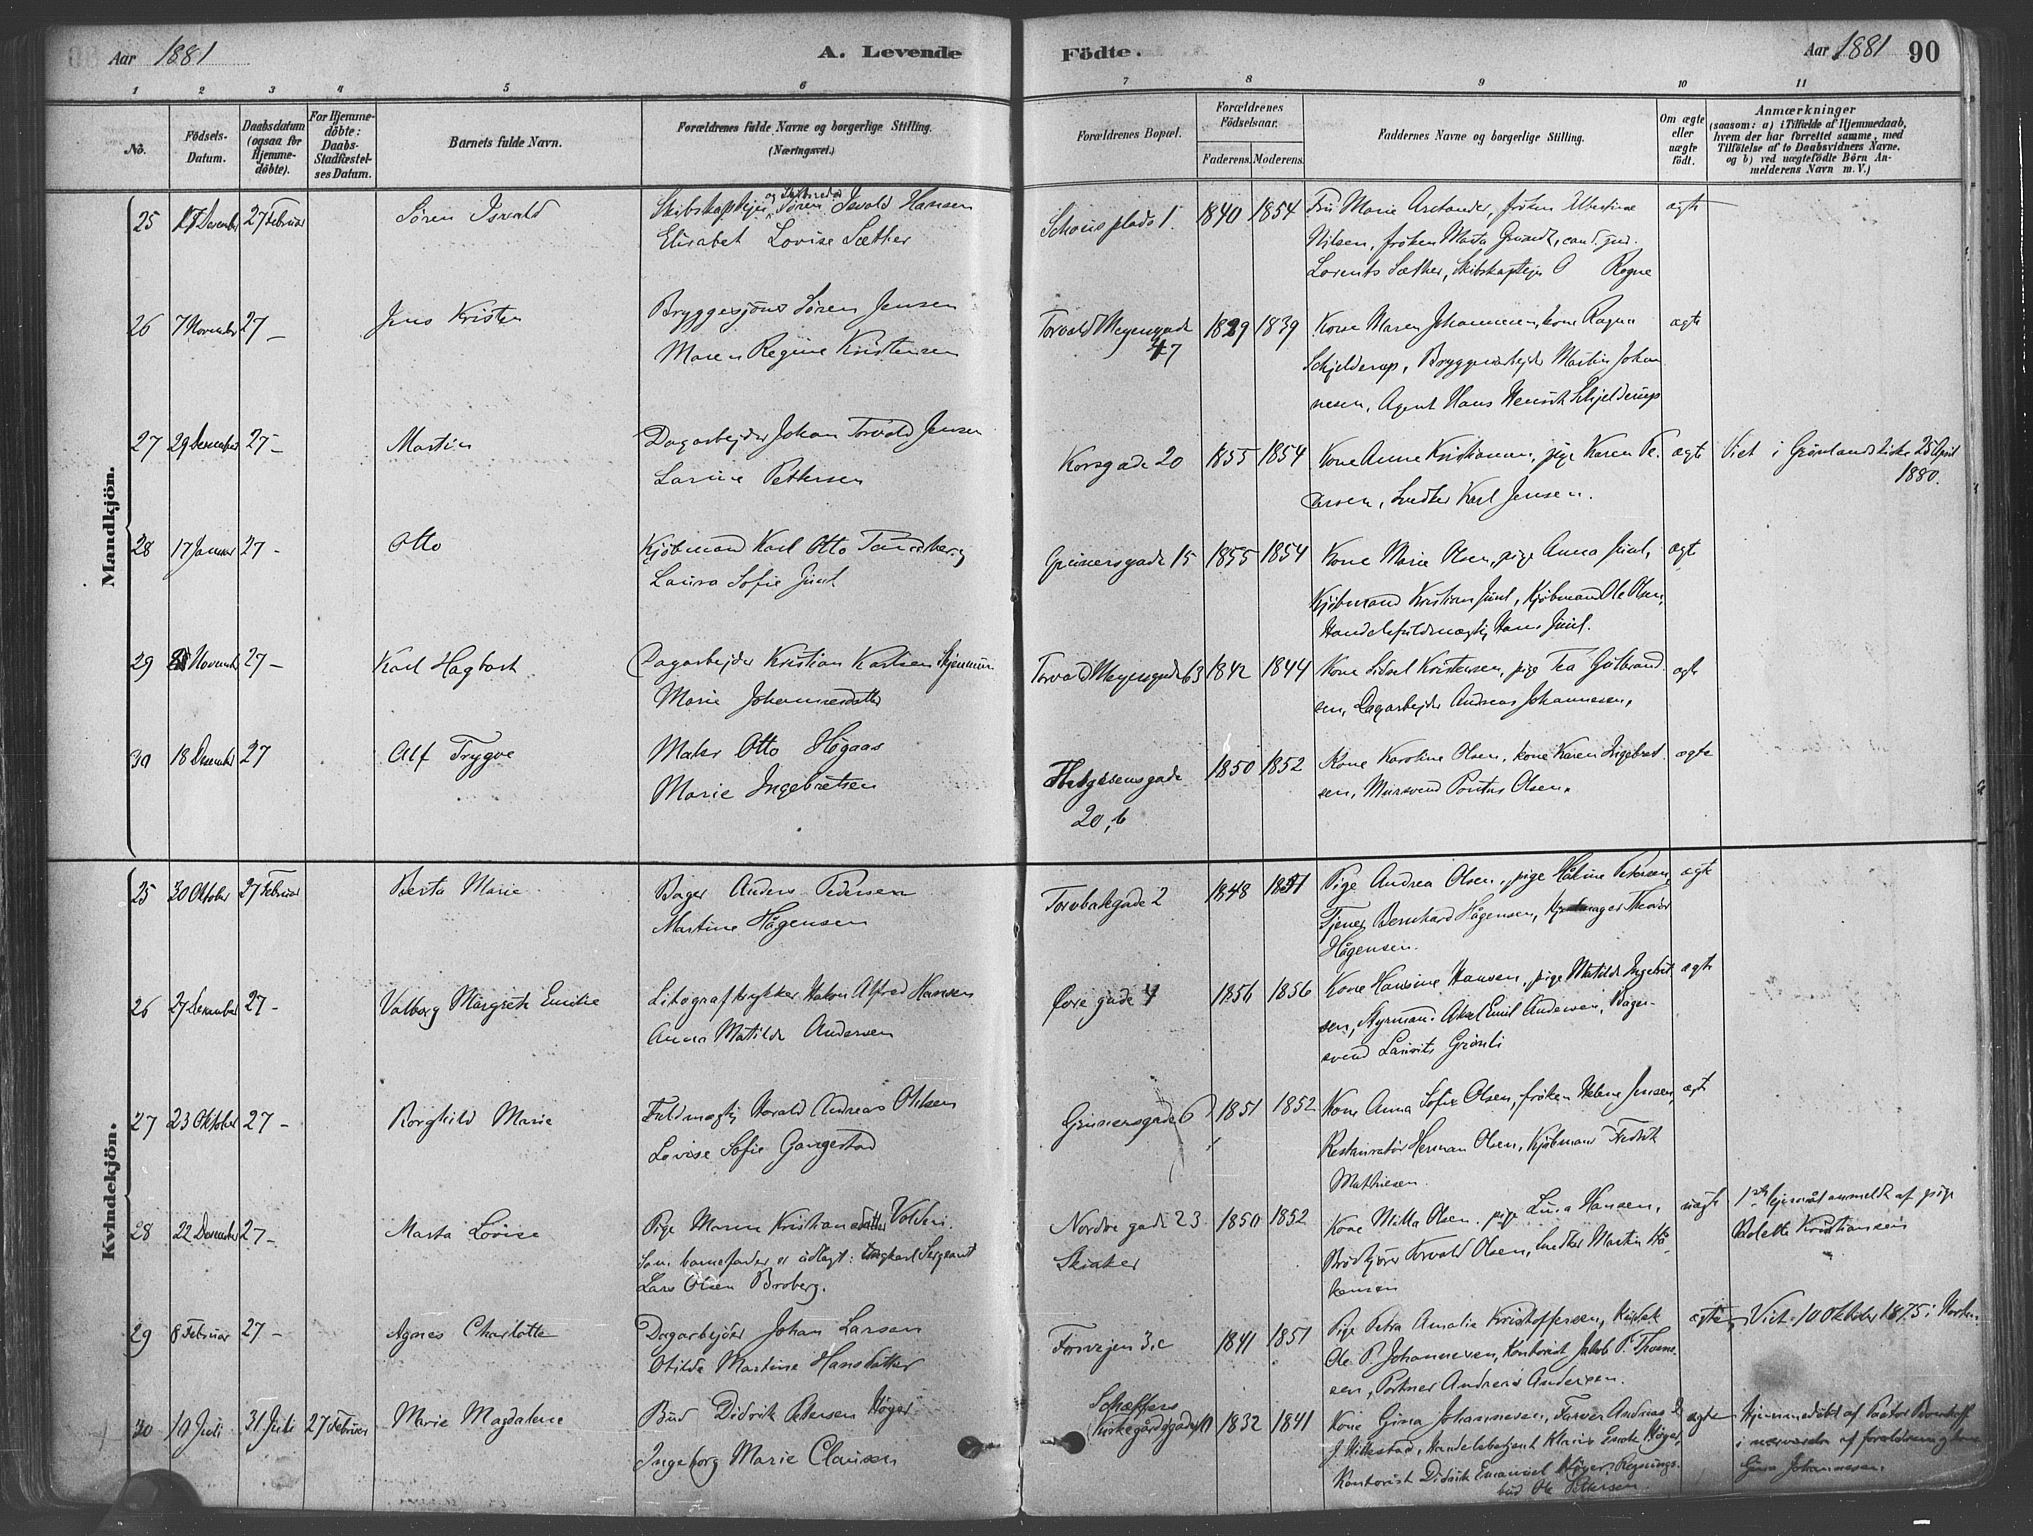 Aar 1881
A. Levende
Födte.
Aar 1881
90
1 2 3 4 5 6 7 8 9 10 11
No.
Födsels-
Datum.
Daabsdatum
(ogsaa for
Hjemme-
döbte).
For Hjemme-
döbte:
Daabs-
Stadfæstel-
ses Datum.
Barnets fulde Navn.
Forældrenes fulde Navne og borgerlige Stilling.
(Næringsvei.)
Forældrenes Bopæl.
Forældrenes
Födselsaar.
Faderens. Moderens.
Faddernes Navne og borgerlige Stilling.
Om ægte
eller
uægte
födt.
Anmærkninger
(saasom: a) i Tilfælde af Hjemmedaab,
hvem der har forrettet samme, med
Tilföielse af to Daabsvidners Navne,
og b) ved uægtefödte Börn An-
melderens Navn m. V.)
Mandkjön.
25 27 Desember 27 Februar Sören Isvald
Skibskaptejn og Skibsreder Sören Isvald Hansen
Elisabet Lovise Sæther
Schous plads 1. 1840 1854
Fru Marie , fröken Albertine
Nilsen, fröken Marta , cand. jur.
Lorents Sæther, Skibskaptejn O Rogne
ægte
26 7 November 27 – Jens Kristen
Bryggesjouer Sören Jensen
Maren Regine Kristensen
Torvald Meyersgade
47
1829 1839
Kone Maren Johannesen, kone Ragna
Schjelderup, Bryggearbejder Martin Johan
nesen, Agent Hans Henrik Schjelderup
ægte
27 29 Desember 27 – Martin
Dagarbejder Johan Torvald Jensen
Larine Pettersen
Korsgade 20 1855 1854
Kone Anne Kristiansen, pige Karen Pe-
dersen, Snedker Karl Jensen.
ægte
Viet i Grønlands Kirke 25 April
1880.
28 17 Januar 27 – Otto
Kjöbmand Karl Otto Tandberg
Laura Sofie Juul
Grünersgade 15 1855 1854
Kone Marie Olsen, pige Anna Juul,
Kjöbmand Kristian Juul, Kjöbmand Ole Olsen,
Handelsfuldmægtig Hans Juul.
ægte
29 November 27 – Karl Hagbart
Dagarbejder Kristian Karlsen
Marie Johannesdatter
Torvald Meyersgade 63 1842 1844
Kone Sidsel Kristensen, pige Tea Gulbrand
sen, Dagarbejder Andreas Johannesen,
ægte
30 18 Desember 27 Alf Trygve
Maler Otto Högaas
Marie Ingebretsen
Helgesensgade
20, b
1850 1852
Kone Karoline Olsen, kone Karen Ingebret
sen, Mursvend Pontus Olsen.
ægte
Kvindekjön.
25 30 Oktober 27 Februar Berta Marie
Bager Anders Pedersen
Martine Hågensen
Torvbakgade 2 1848 1851
Pige Andrea Olsen, pige Håkine Petersen,
Tjener Bernhard Hågensen, Theodor
Hågensen.
ægte
26 27 Desember 27 – Valborg Margrete Emilie
Litograftrykker Hakon Alfred Hansen
Anna Matilde Andersen
Övre gade 4 1856 1856
Kone Hansine Hansen, pige Matilde Ingebret
sen, Styrmand Aksel Emil Andersen, Bager-
svend Laurits Grönli
ægte
27 23 Oktober 27 – Borghild Marie
Fuldmægtig Harald Andreas Ohlsen
Lovise Sofie Gangestad
Grünersgade 6 1851 1852
Kone Anna Sofie Olsen, fröken Helene Jensen,
Restauratör Herman Olsen, Kjöbmand Fredrik
Mathiesen.
ægte
28 22 Desember 27 – Marta Lovise
Pige Maren Kristiansdatter Volden.
Som barnefader er udlagt: Ungkarl Sergeant
Lars Olsen Broberg.
Nordre gade 23
Skiaker
1850 1852
Kone Milla Olsen. pige Lina Hansen,
Brödkjörer Torvald Olsen, Snedker Martin Hå
kensen
uægte
1ste lejermål anmeldt af pige
Bolette Kristiansen
29 8 Februar 27 – Agnes Charlotte
Dagarbejder Johan Larsen
Otilde Martine Hansdatter
Fossvejen 3.c 1841 1851
Pige Petra Amalie Kristoffersen, Kusk
Ole P. Johannesen, Kontorist Jakob P. Thom
sen, Portner Andreas Andersen.
ægte
Viet 10 Oktober 1875 i
30 10 Juli 31 Juli 27 Februar Marie Magdalene
Bud Didrik Petersen Höyer
Ingeborg Marie Clausen
Schæffers
Kirkegårdsgade 10
1832 1841
Kone Gina Johannesen, Farver Andreas
J. Hillestad, Handelsbetjent Klaus Höyer,
Kontorist Didrik Emanuel Höyer, Regnings-
bud Ole Petersen.
ægte
Hjemmedöbt af Pastor
i nærværelse af forældrene og kone
Gina Johannesen.